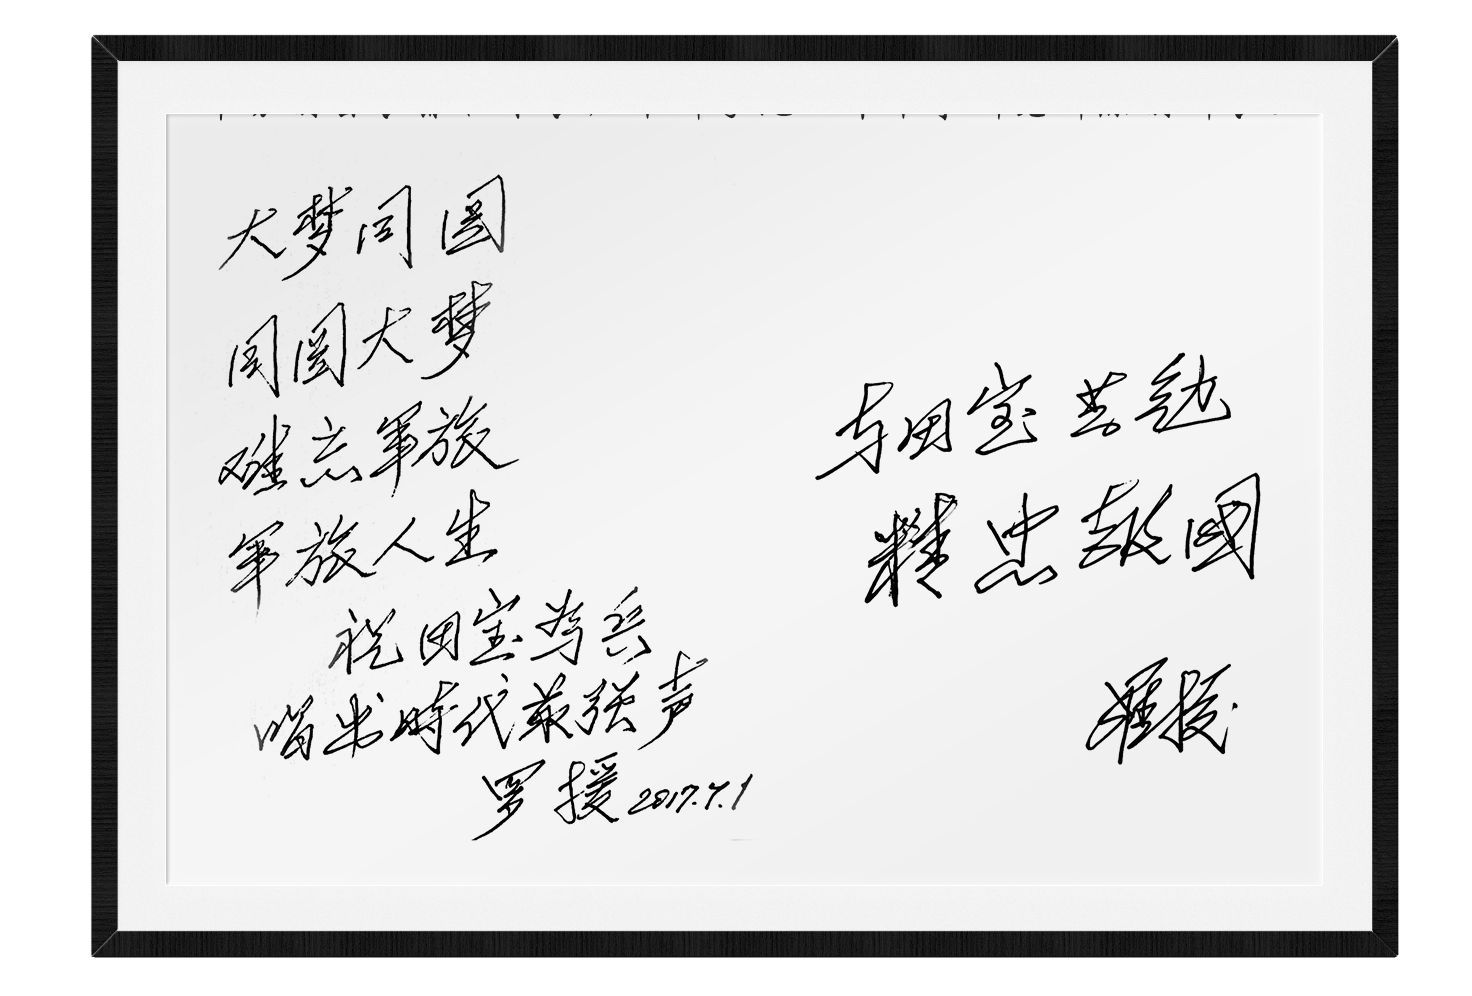 大梦同圆
同圆大梦
难忘军旅
军旅人生
祝田宝为兵
唱出时代最强声
罗援 2017.7.1
与田宝共勉
精忠报國
罗援